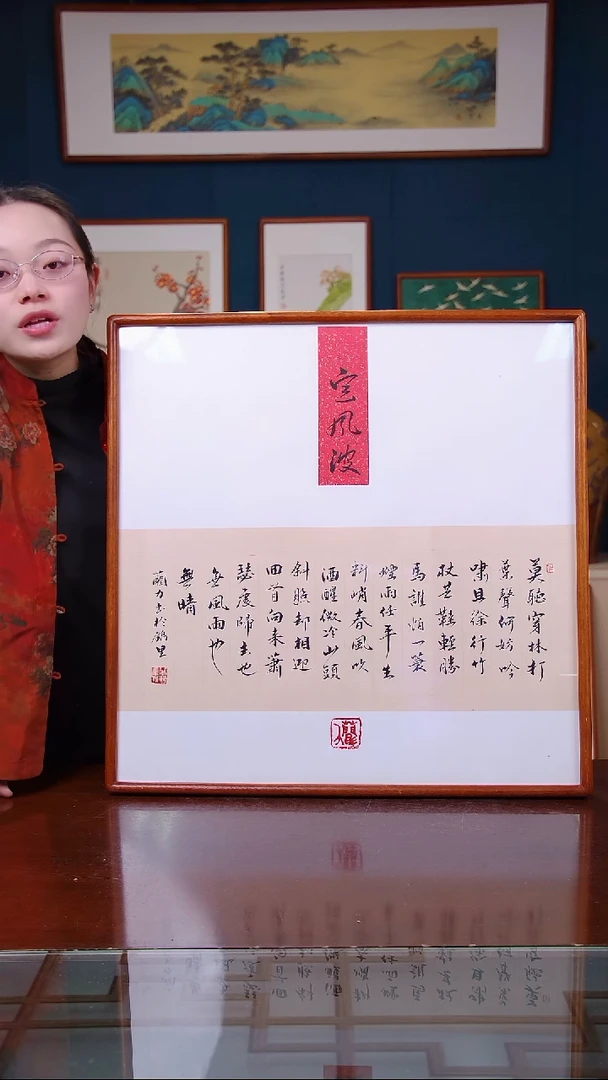 定风波
莫聽穿林打
葉聲何妨吟
嘯且徐行竹
杖芒鞋輕勝
馬誰怕一蓑
煙雨任平生
料峭春風吹
酒醒微冷山頭
斜照却相迎
回首向來蕭
瑟處歸去也
無風雨也
無晴